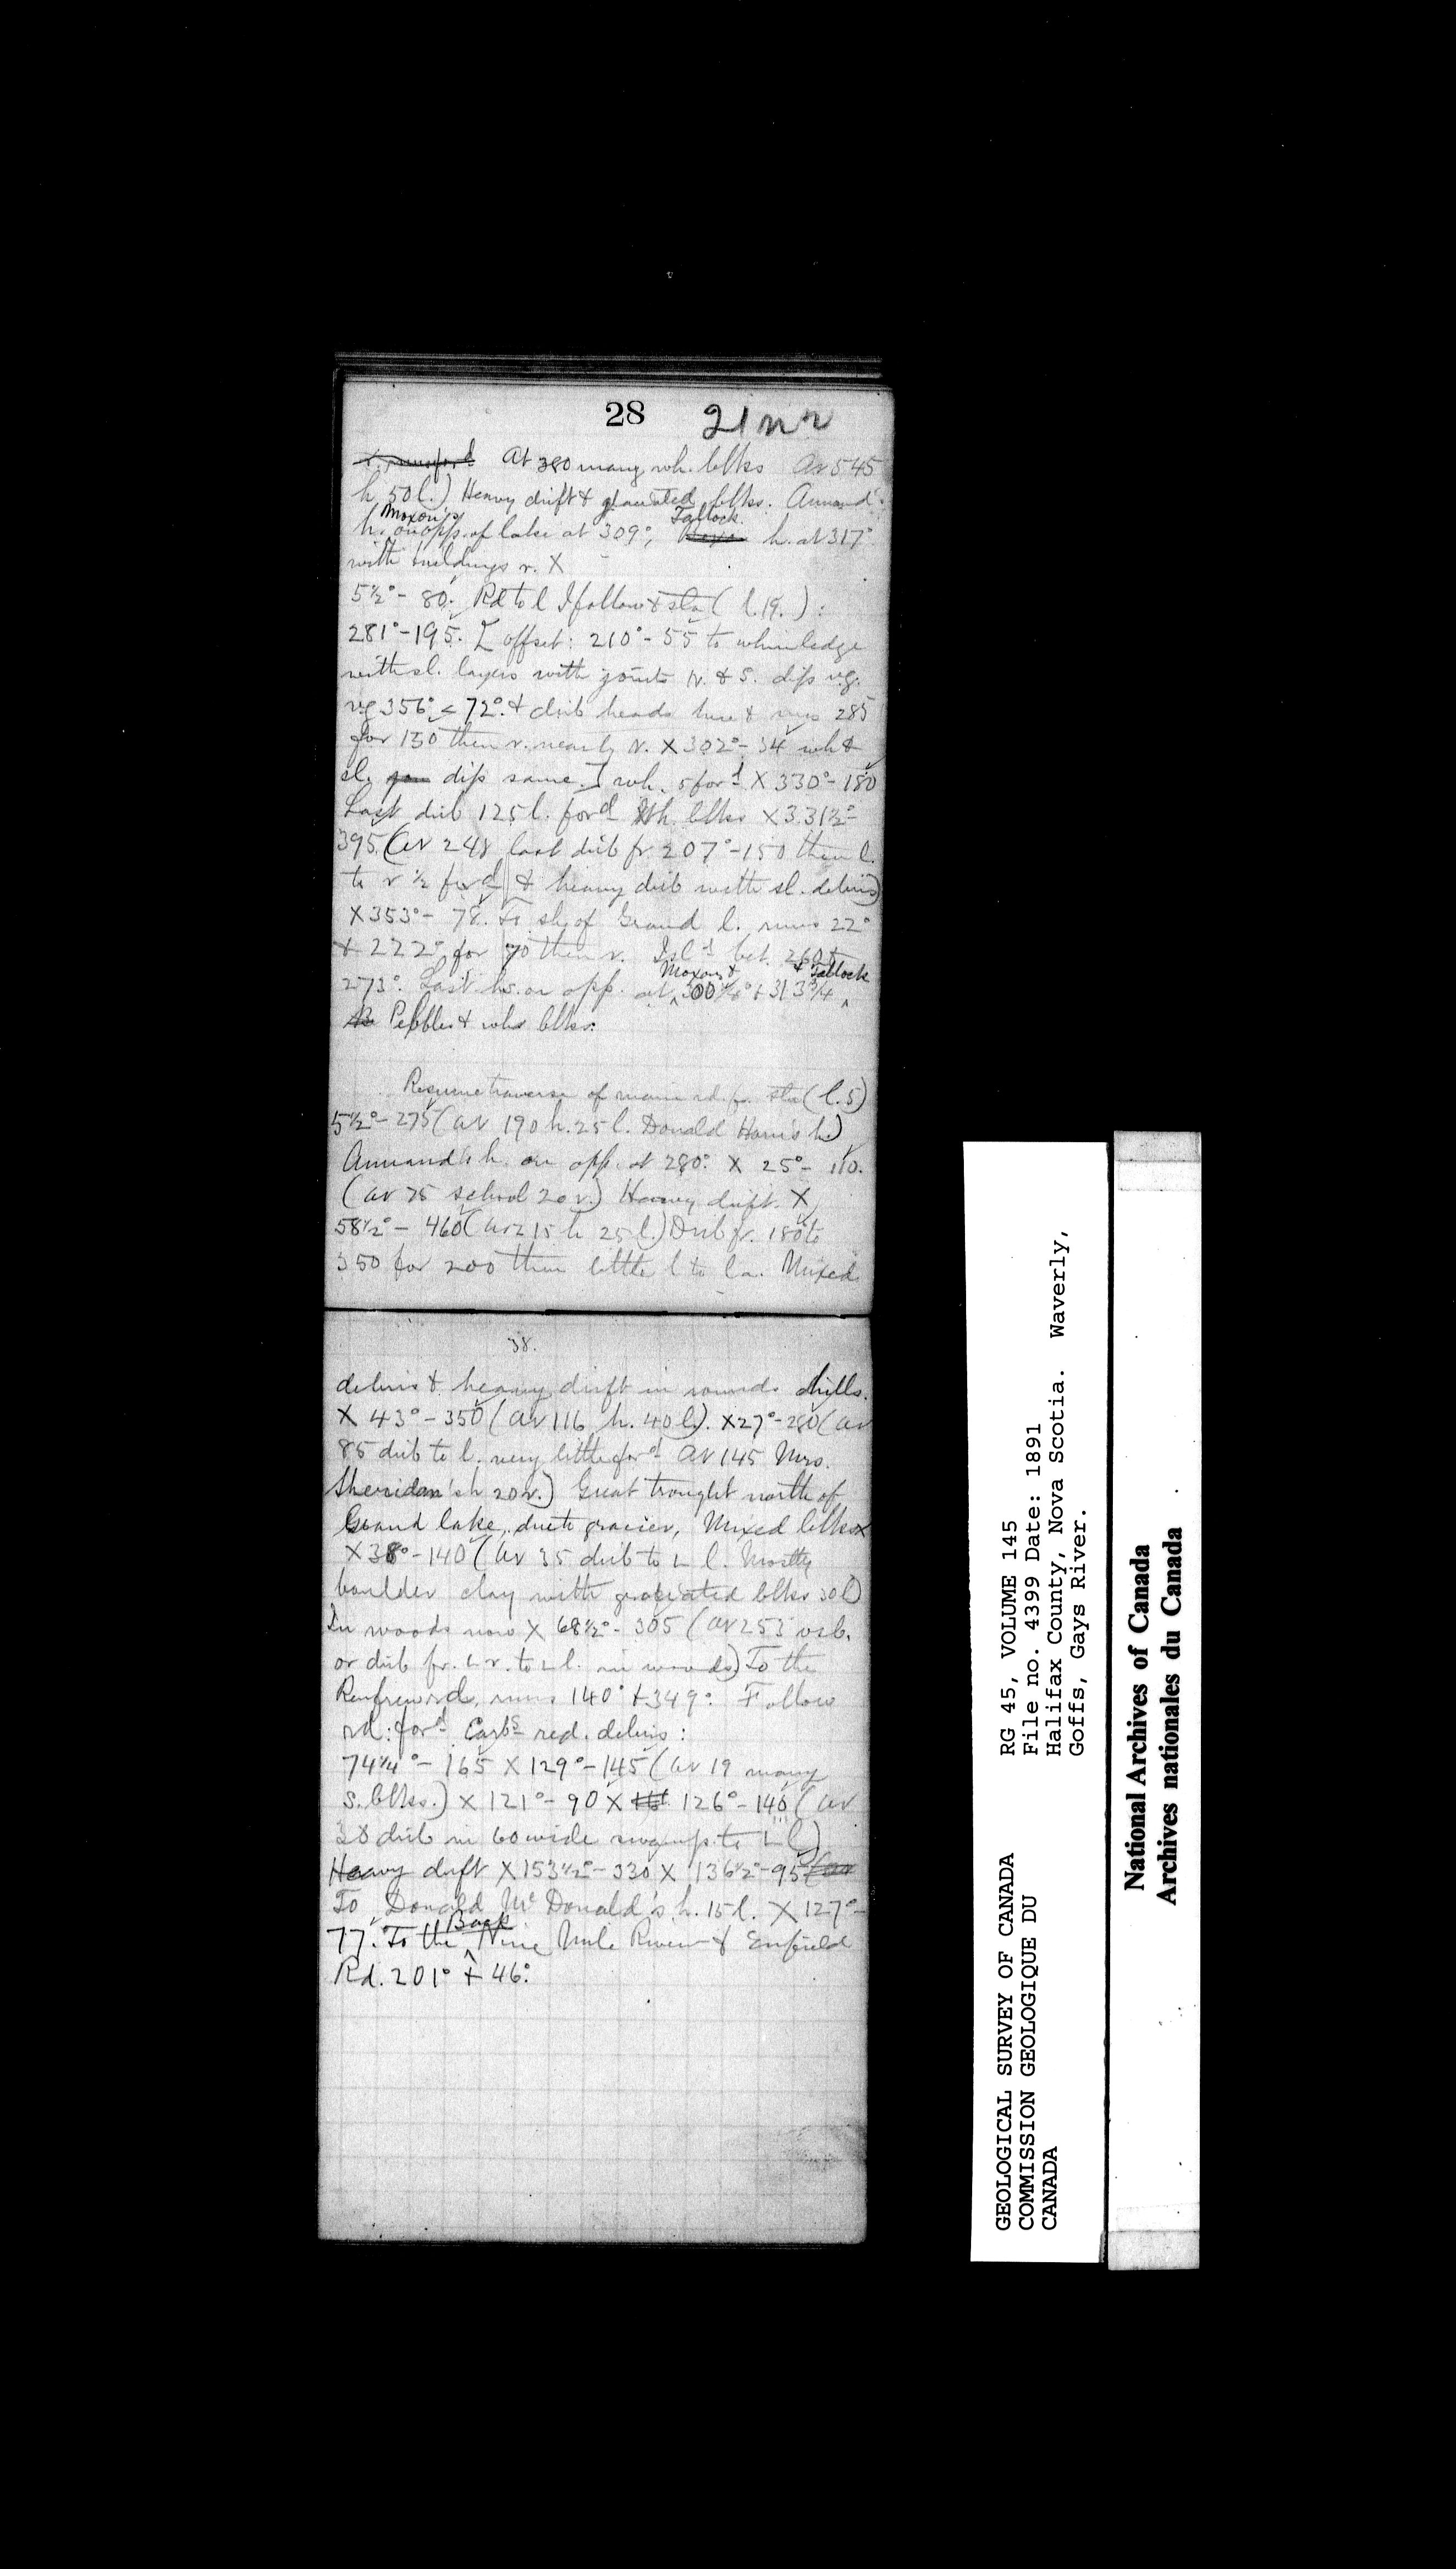 28 21
At 380 many wh. blks At 545
h. 50 l.) Heavy drift & glaciated blks. Annand's
Moxon's Tallock
h. on opp. of lake at 309°, h. at 317°
with buildings r. X
5½° - 80. Rd to l I follow & sta ( l. 19. ) :
281° - 195. [ offset: 210° - 55 to whin ledge
with sl. layers with joints N. & S. dips v.g.
v.g 356° < 72°. & drib heads here & runs 285
for 150 then r. nearly N. X 302° - 34 wh &
sl. dip same. ] wh. s for^d X 330° - 180
Last drib 125 l. for^d Wh. blks X 331½° -
395. (At 248 last drib fr. 207° - 150 then l.
to r ½ for^d & heavy drib with sl. debris)
X 353° - 78. To sh. of Grand l. runs 22°
& 222° for 70 then r. Isl^d bet. 260 &
Moxon's & Tallock
273°. Last hs. on opp. at 300 & 313¾
Pebbles & whin blks.
Resume traverse of main rd. fr. sta (l. 5)
5½° - 275 (At 190 h. 25 l. Donald Harris h.)
Annand's h. on opp. at 280°. X 25° - 110.
(At 75 school 20 r.) Heavy drift. X
58½° - 460 (At 215 h 25 l.) Drib fr. 180 to
350 for 200 then little l to l a. Mixed
38.
debris & heavy drift in rounds hills.
X 43° - 350 (At 116 h. 40 l.). X 27° - 280 (At
85 drib to l. very little for^d At 145 Mrs.
Sheridan's h 20 r.) Great trought north of
Grand lake, due to gracier, Mixed blks
X 38° - 140 (At 35 drib to ∟ l. Mostly
boulder clay with glaciated blks 30 l)
In woods now X 68½° - 305 (At 253 vsb.
or drib fr. ∟ r. to ∟ l. in woods) To the
Renfrew rd. runs 140° & 349°. Follow
rd. for^d Carb^s red. debris :
74¼° - 165 X 129° - 145 (At 19 many
s. blks.) X 121° - 90 X 126° - 140 (At
38 drib in 60 wide swamp to ∟ l)
Heavy drift X 153½° - 330 X 136½° - 95
To Donald McDonald's h. 15 l. X 127° -
Back
77. To the Nine Mile River & Enfield
Rd. 201° & 46°.
RG 45, VOLUME 145
File no. 4399 Date: 1891
Halifax County, Nova Scotia. Waverly,
Goffs, Gays River.
GEOLOGICAL SURVEY OF CANADA
COMMISSION GEOLOGIQUE DU
CANADA
National Archives of Canada
Archives nationales du Canada